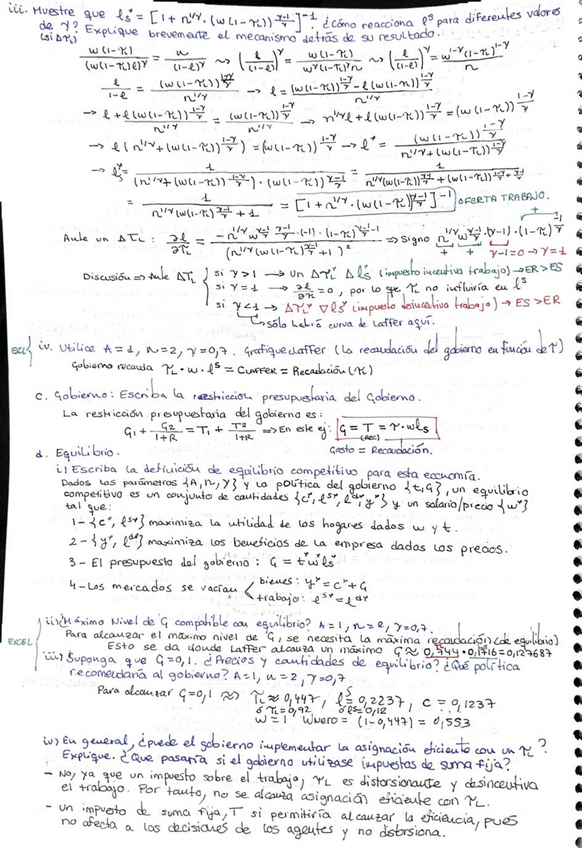 iii. Muestre que ls* = [1 + n^1/γ · (w(1-τL))^(γ-1)/γ]^-1 ¿cómo reacciona l^s para diferentes valores
de γ? Explique brevemente el mecanismo detrás de su resultado.
(si Δτl)
w(1-τL)/(w(1-τL)l)^γ = n/(1-l)^γ ⇝ (l/(1-l))^γ = w(1-τL)/(w^γ(1-τL)^γ n) ⇝ (l/(1-l))^γ = w^1-γ(1-τL)^1-γ/n
l/(1-l) = (w(1-τL))^(1-γ)/γ / n^1/γ → l = ((w(1-τL))^(1-γ)/γ - l(w(1-τL))^(1-γ)/γ)/n^1/γ
→ l + l(w(1-τL))^(1-γ)/γ / n^1/γ = (w(1-τL))^(1-γ)/γ / n^1/γ → n^1/γ l + l(w(1-τL))^(1-γ)/γ = (w(1-τL))^(1-γ)/γ
→ l(n^1/γ + (w(1-τL))^(1-γ)/γ) = (w(1-τL))^(1-γ)/γ → l* = (w(1-τL))^(1-γ)/γ / (n^1/γ + (w(1-τL))^(1-γ)/γ)
→ ls* = 1/((n^1/γ + (w(1-τL))^(1-γ)/γ) · (w(1-τL))^(γ-1)/γ) = 1/(n^1/γ (w(1-τL))^(γ-1)/γ + (w(1-τL))^(1-γ)/γ + (γ-1)/γ)
= 1/(n^1/γ (w(1-τL))^(γ-1)/γ + 1) = [1 + n^1/γ · (w(1-τL))^(γ-1)/γ]^-1 OFERTA TRABAJO.
Ante un Δ TL : ∂l/∂TL = -n^1/γ w^(γ-1)/γ · (γ-1)/γ · (-1) · (1-τL)^(γ-1)/γ-1 / (n^1/γ (w(1-τL))^(γ-1)/γ + 1)^2 ⇒ Signo n^1/γ w^(γ-1)/γ · (γ-1) · (1-τL)^-1/γ
+ + + γ-1=0 → γ=1
Discusión ⇒ Ante ΔTL { si γ > 1 → Un Δτl* Δls* (impuesto incentiva trabajo) → ER > ES
si γ = 1 → ∂l/∂τl = 0, por lo que τl no influiría en l^s
si γ < 1 → Δτl* ∇ls* (impuesto desincentiva trabajo) → ES > ER
↳ sólo habrá curva de Laffer aquí.
EXCEL { iv. Utilice A = 1, n = 2, γ = 0,7. Grafique Laffer (la recaudación del gobierno en función de τ)
Gobierno recauda τL · w · l^s = CLAFFER = Recaudación (τL)
c. Gobierno: Escriba la restricción presupuestaria del Gobierno.
La restricción presupuestaria del gobierno es:
G1 + G2/(1+R) = T1 + T2/(1+R) ⇒ En este ej: G = T = τ · wls
(REC)
Gasto = Recaudación.
d. Equilibrio.
i) Escriba la definición de equilibrio competitivo para esta economía.
Dados los parámetros {A, n, γ} y la política del gobierno {t, G}, un equilibrio
competitivo es un conjunto de cantidades {c*, l^s*, l^d*, y*} y un salario/precio {w*}
tal que:
1 - {c*, l^s*} maximiza la utilidad de los hogares dados w y t.
2 - {y*, l^d*} maximiza los beneficios de la empresa dados los precios.
3 - El presupuesto del gobierno: G = t*w*ls*
4 - Los mercados se vacían { bienes: y* = c* + G
trabajo: l^s* = l^d*
ii) ¿Máximo Nivel de G compatible con equilibrio? A = 1, n = 2, γ = 0,7
EXCEL Para alcanzar el máximo nivel de G, se necesita la máxima recaudación (de equilibrio)
Esto se da donde Laffer alcanza un máximo G ≈ 0,744 · 0,1716 = 0,127687
iii) Suponga que G = 0,1. ¿Precios y cantidades de equilibrio? ¿Qué política
recomendaría al gobierno? A = 1, n = 2, γ = 0,7
Para alcanzar G = 0,1 ≈> TL ≈ 0,447, l^s ≈ 0,2237, c = 0,1237
ó TL = 0,92 ó ls = 0,12
W = 1 Wnero = (1-0,447) = 0,553
iv) En general, ¿puede el gobierno implementar la asignación eficiente con un τL?
Explique. ¿Que pasaría si el gobierno utilizase impuestos de suma fija?
- No, ya que un impuesto sobre el trabajo, τL es distorsionante y desincentiva
el trabajo. Por tanto, no se alcanza asignación eficiente con τL.
- Un impuesto de suma fija, T si permitiría alcanzar la eficiencia, pues
no afecta a las decisiones de los agentes y no distorsiona.